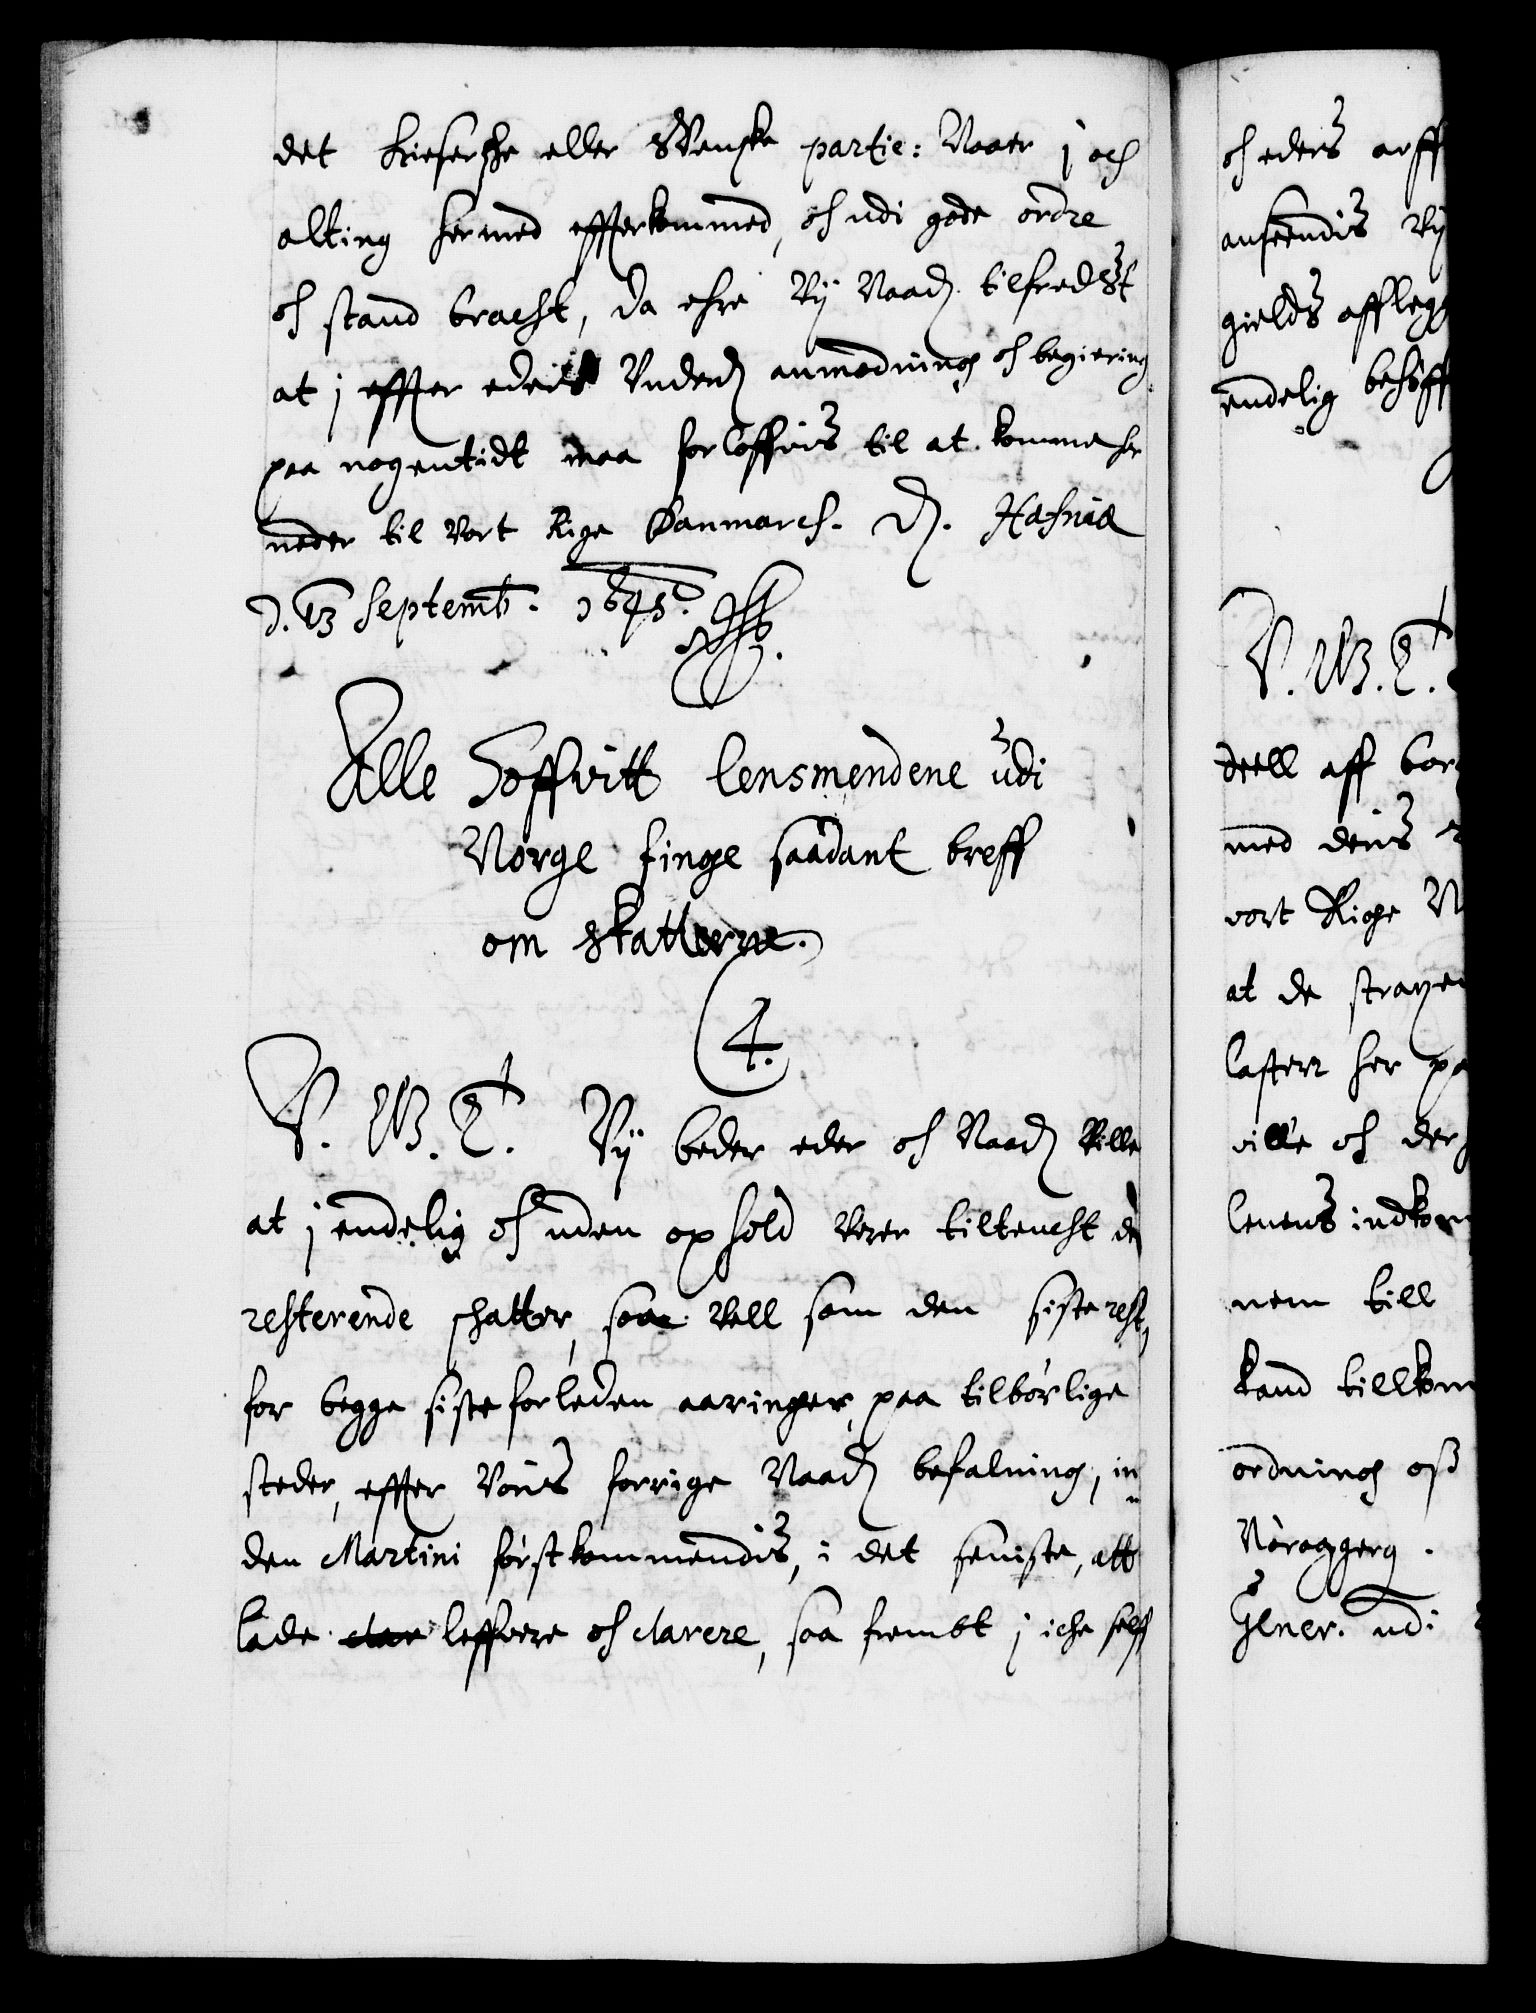 det Kieserske eller Svenske partie: Naar j och
alting hermed effterkommed, oh udi gode ordre
oh stand bracht, da ehre Vij Naad. tilfredst
at j effter eders Underd. anmodning oh begiering
paa nogentidt maa forloffvis til at komme her
neder til vort Rige Danmarch. D. Hafniæ
d. 13 Septemb. 1645.
Alle Hoffvitt lensmendene udi
Norge finge saadant breff
om skatterne.
4.
V. G. T. Vij beder eder oh Naad. Ville
at j endelig oh uden ophold verer tiltencht de
resterende schatter, saa vell som den siste rest,
for begge siste forleden aaringer, paa tilbørlige
steder, effter Voris forrige Naad. befalning, in
den Martini førstkommendis, i det seniste, att
lade clar leffvere oh clarere, saa frembt j iche self
oh eders arff
anseendis Vij
gields afflegg
endelig behøff
V. G. T.
deell aff bor
med deris
vort Rige N
at de straxe
lasterr her pa
ville oh der
lenens indkom
nem till
kand tillkom
ordning oß
Gener. udi